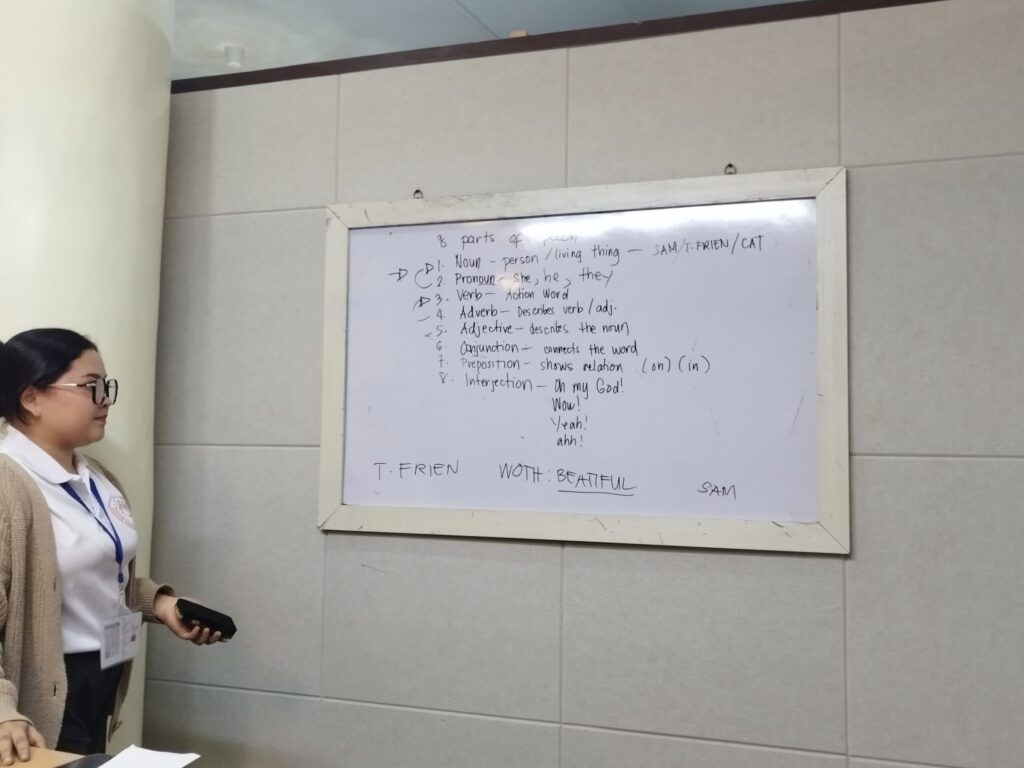 8 parts of
1. Noun - person / living thing - SAM/T.FRIEN/CAT
2. Pronoun - she, he, they
3. Verb - Action Word
4. Adverb - Describes verb / adj.
5. Adjective - describes the noun
6. Conjunction - connects the word
7. Preposition - shows relation (on) (in)
8. Interjection - Oh my God!
Wow!
Yeah!
ahh!
T. FRIEN WOTH: BEATIFUL SAM